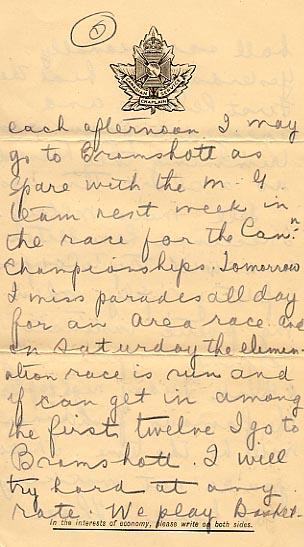 CANADIAN CHAPLAIN SERVICES
each afternoon I may
go to Bramshott as
spare with the M. G.
team next week in
the race for the Can.n
Championships. Tomorrow
I miss parades all day
for an area race and
on Saturday the elemin-
ation race is run and
if can get in among
the first twelve I go to
Bramshott. I will
try hard at any
rate. We play Basket-
In the interests of economy, please write on both sides.